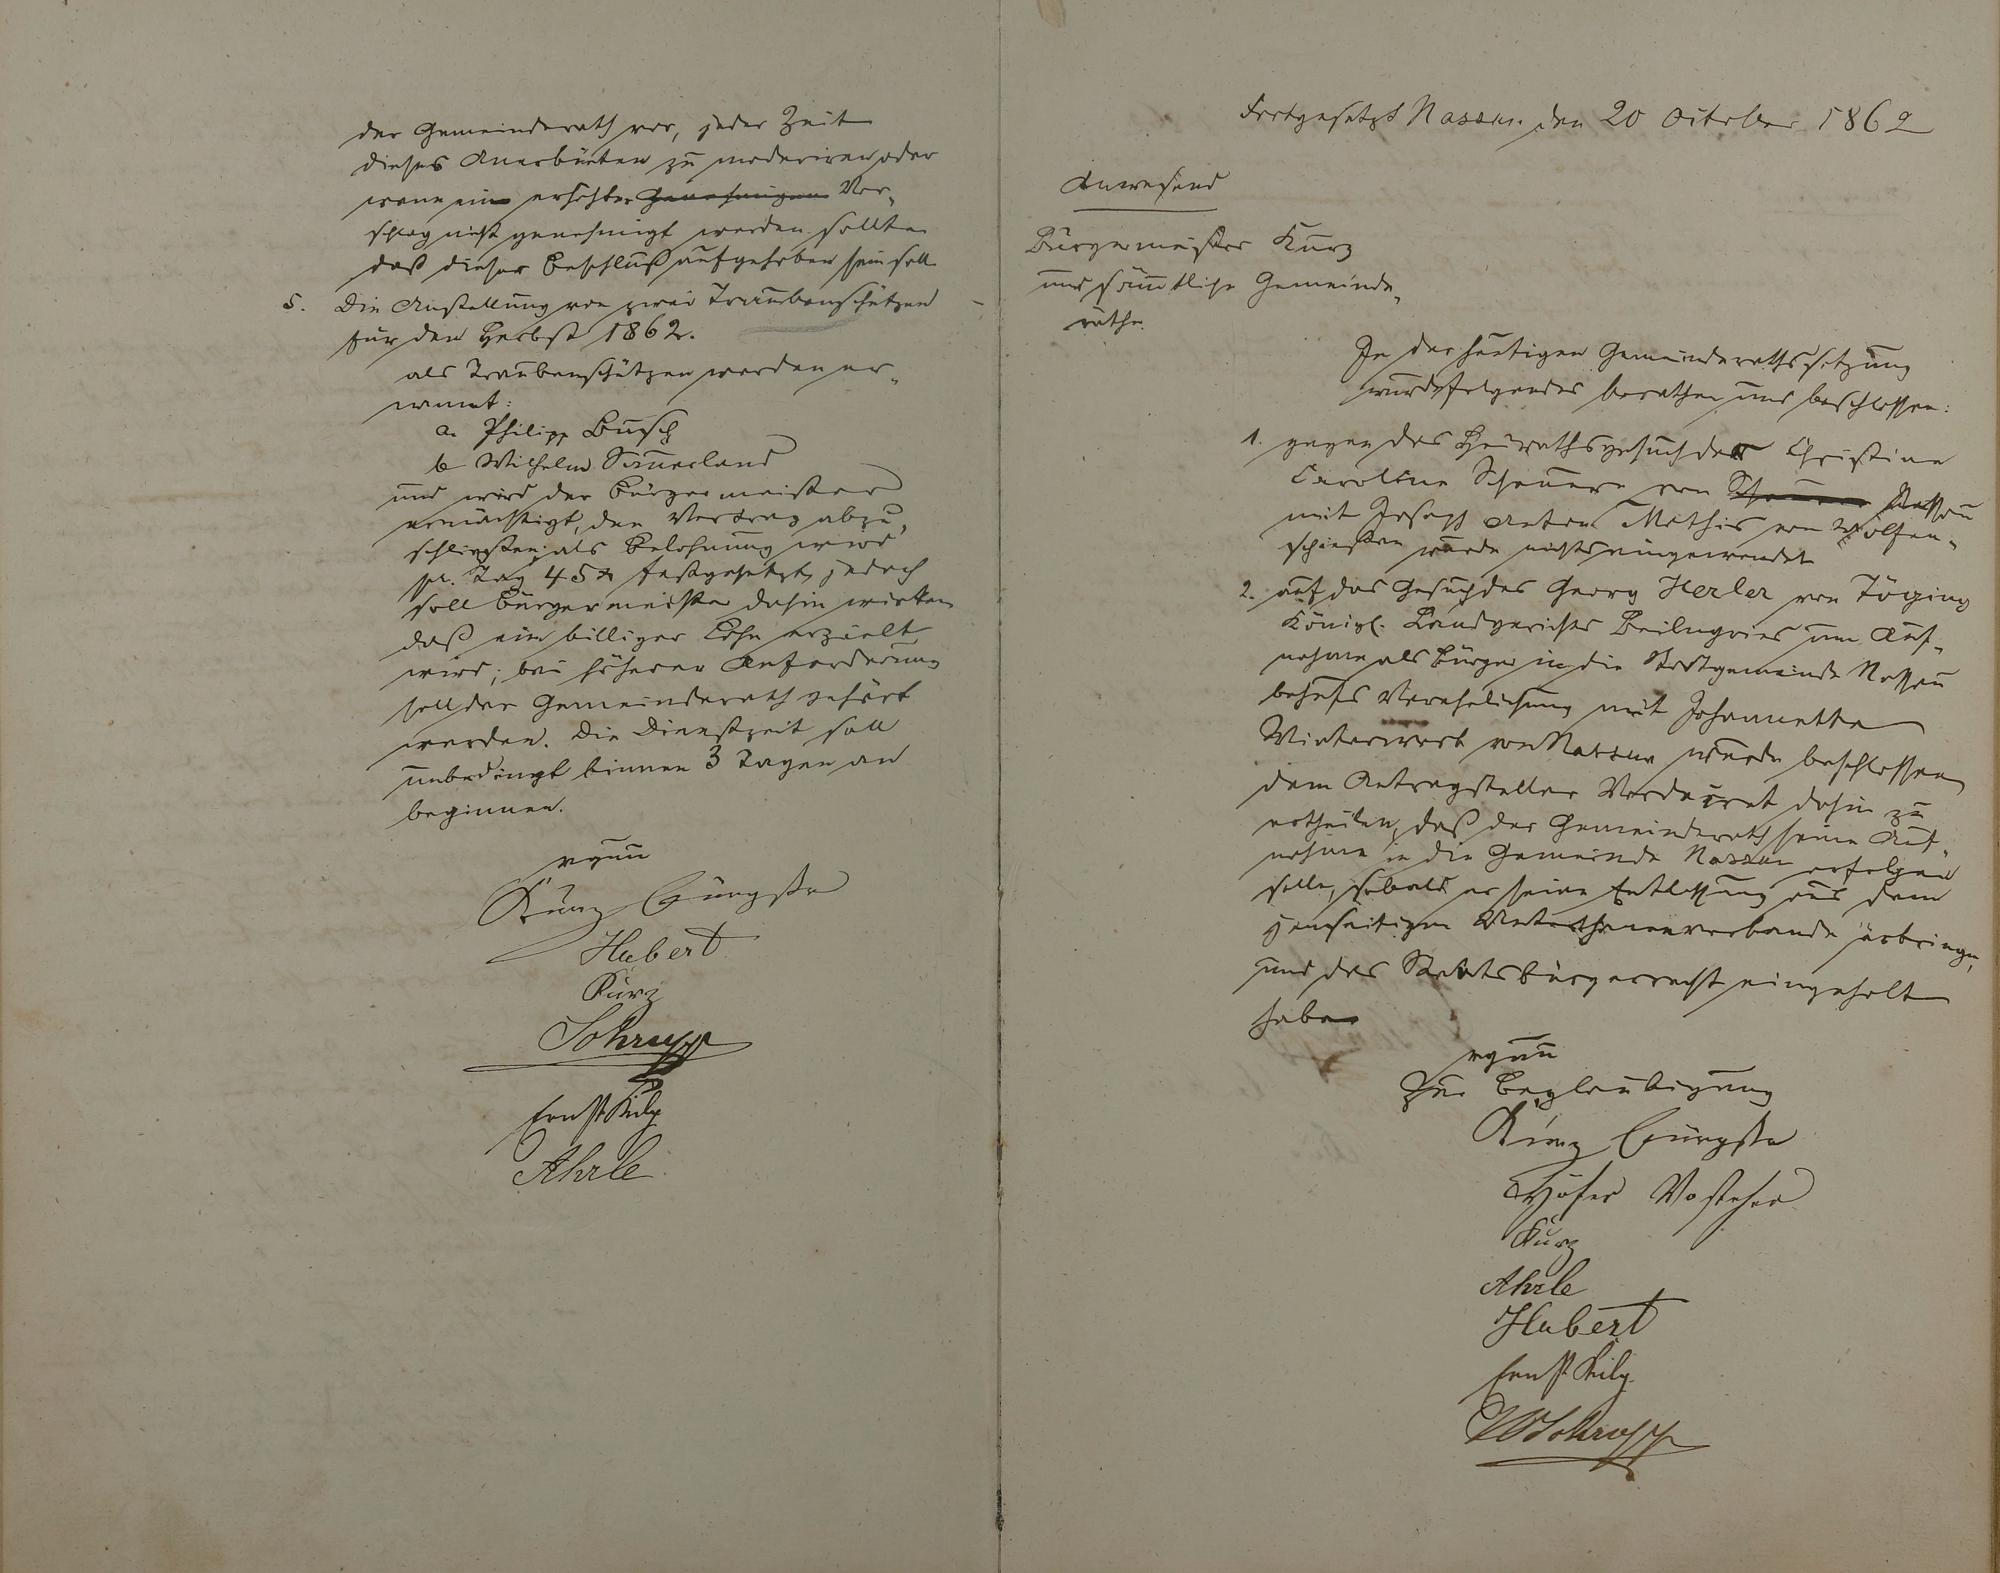 der Gemeinderath vor, jeder Zeit
dieses Anerbieten zu moderiren oder
wenn ein erhöhter Genehmigen Vor-
schlag nicht genehmigt werden sollte
daß dieser Beschluß aufgehoben sein soll
5. Die Anstellung von zwei Traubenschützen
für den Herbst 1862.
als Traubenschützen werden er-
nannt:
a. Philipp Busch
b Wilhelm Sauerland
und wird der Bürgermeister
ermächtigt, den Vertrag abzu-
schließen; als Belohnung wird
pr. Tag 45 x festgesetzt, jedoch
soll Bürgermeister dahin wirken
daß ein billiger Lohn erzielt
wird; bei höherer Anforderung
soll der Gemeinderath gehört
werden. Die Dienstzeit soll
unbedingt binnen 3 Tagen an
beginnen.
vguu
Kurz Bürgstr
Hubert
Kurz
Schrupp
Ernst Kilp
Ahrle
Fortgesetzt Nassau den 20 October 1862
Anwesend
Bürgermeister Kurz
und sämtliche Gemeinde-
räthe.
In der heutigen Gemeinderathssitzung
wurde folgendes berathen und beschlossen:
1. gegen das Heirathsgesuch der Christine
Caroline Scheuern von Scheuern Nassau
mit Joseph Anton Mathis von Wolfen-
schießen wurde nichts eingewendet
2. auf das Gesuch des Georg Herler von Töging
Königl. Landgerichts Beilngries um Auf-
nahme als Bürger in die Stadtgemeinde Nassau
behufs Verehelichung mit Johannetta
Winterwerb von Nassau wurde beschlossen
dem Antragsteller Vordecret dahin zu
ertheilen, daß der Gemeinderath seine Auf-
nahme in die Gemeinde Nassau erfolgen
solle, sobald er seine Entlassung aus dem
jenseitigen Unterthanenverbande erbringen,
und das Staatsbürgerrecht eingeholt
habe
vguu
Zur Beglaubigung
Kurz Bürgstr
Höfer Vosteher
Kurz
Ahrle
Hubert
Ernst Kilp
W Schrupp